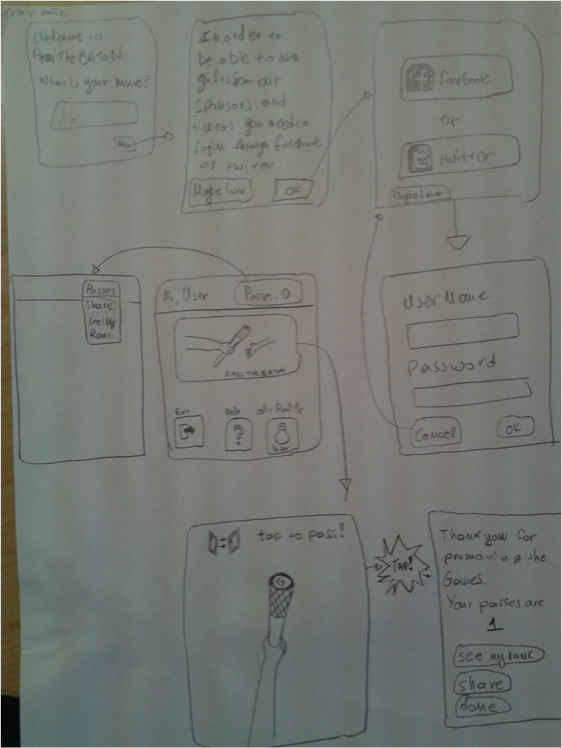 Create Profile
Welcome to
Pass The BATON
What is your name?
In order to
be able to win
gifts from our
sponsors and
tickets you need to
login through facebook
or twitter
Maybe Later
OK
facebook
or
twitter
Maybe Later
Passes
Share
See My
Rank
Hi, User
Passes: 0
PASS THE BATON
Exit
Help
?
Profile
User
User Name
Password
Cancel
OK
tap to pass!
TAP!
Thank you for
promoting the
Games.
Your passes are
1
see my rank
share
done